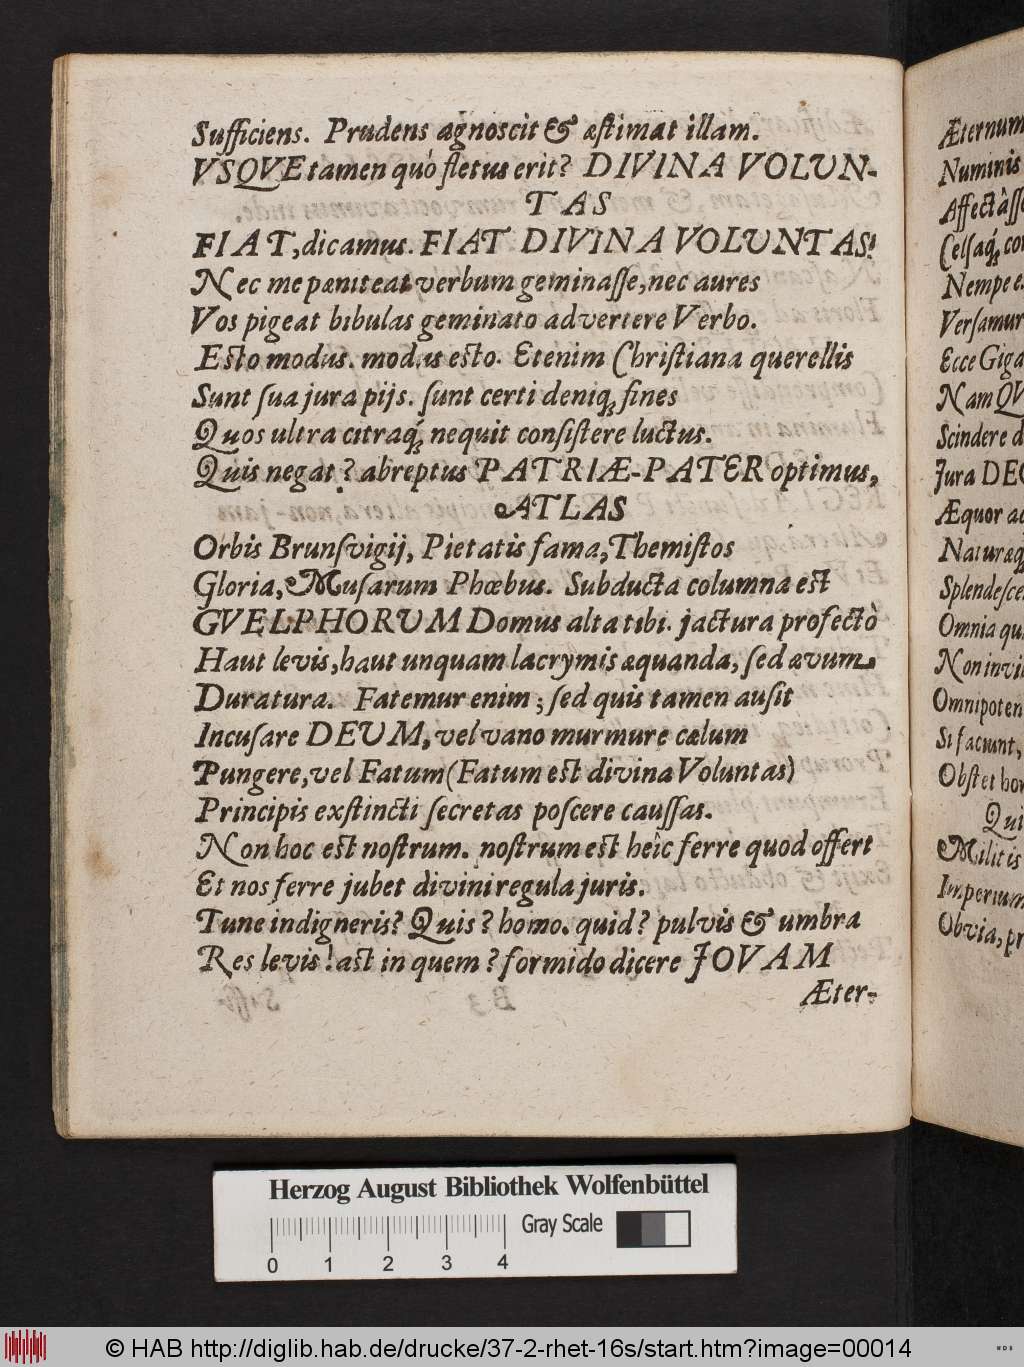 Sufficiens. Prudens agnoscit & æſtimat illam.
VSQVE tamen quò fletus erit? DIVINA VOLUN-
TAS
FIAT, dicamus. FIAT DIVINA VOLUNTAS!
Nec me pæniteat verbum geminaſſe, nec aures
Vos pigeat bibulas geminato advertere Verbo.
Eſto modus. modus eſto. Etenim Chriſtiana querellis
Sunt ſua jura pijs. ſunt certi deniq́; fines
Quos ultra citraq́; nequit conſiſtere luctus.
Quis negat? abreptus PATRIÆ-PATER optimus,
ATLAS
Orbis Brunſvigij, Pietatis fama, Themiſtos
Gloria, Muſarum Phœbus. Subducta columna eſt
GVELPHORUM Domus alta tibi. jactura profectò
Haut levis, haut unquam lacrymis æquanda, ſed ævum
Duratura. Fatemur enim; ſed quis tamen auſit
Incuſare DEUM, vel vano murmure cælum
Pungere, vel Fatum (Fatum est divina Voluntas)
Principis exſtincti ſecretas poſcere cauſſas.
Non hoc eſt noſtrum. noſtrum eſt heîc ferre quod offert
Et nos ferre jubet divini regula juris.
Tune indigneris? Quis? homo. quid? pulvis & umbra
Res levis! aſt in quem? formido dicere JOVAM
Æter-
Æternum
Numinis
Affectâſſe
Celſaq́;
Nempe e
Verſamur
Ecce Giga
Nam QV
Scindere d
Jura DEO
Æquor a
Naturæq́;
Splendeſce
Omnia qu
Non invi
Omnipoten
Si faciunt,
Obſtet ho
Qui
Militis
Imperium
Obvia, pr
Herzog August Bibliothek Wolfenbüttel
Gray Scale
0 1 2 3 4
© HAB http://diglib.hab.de/drucke/37-2-rhet-16s/start.htm?image=00014